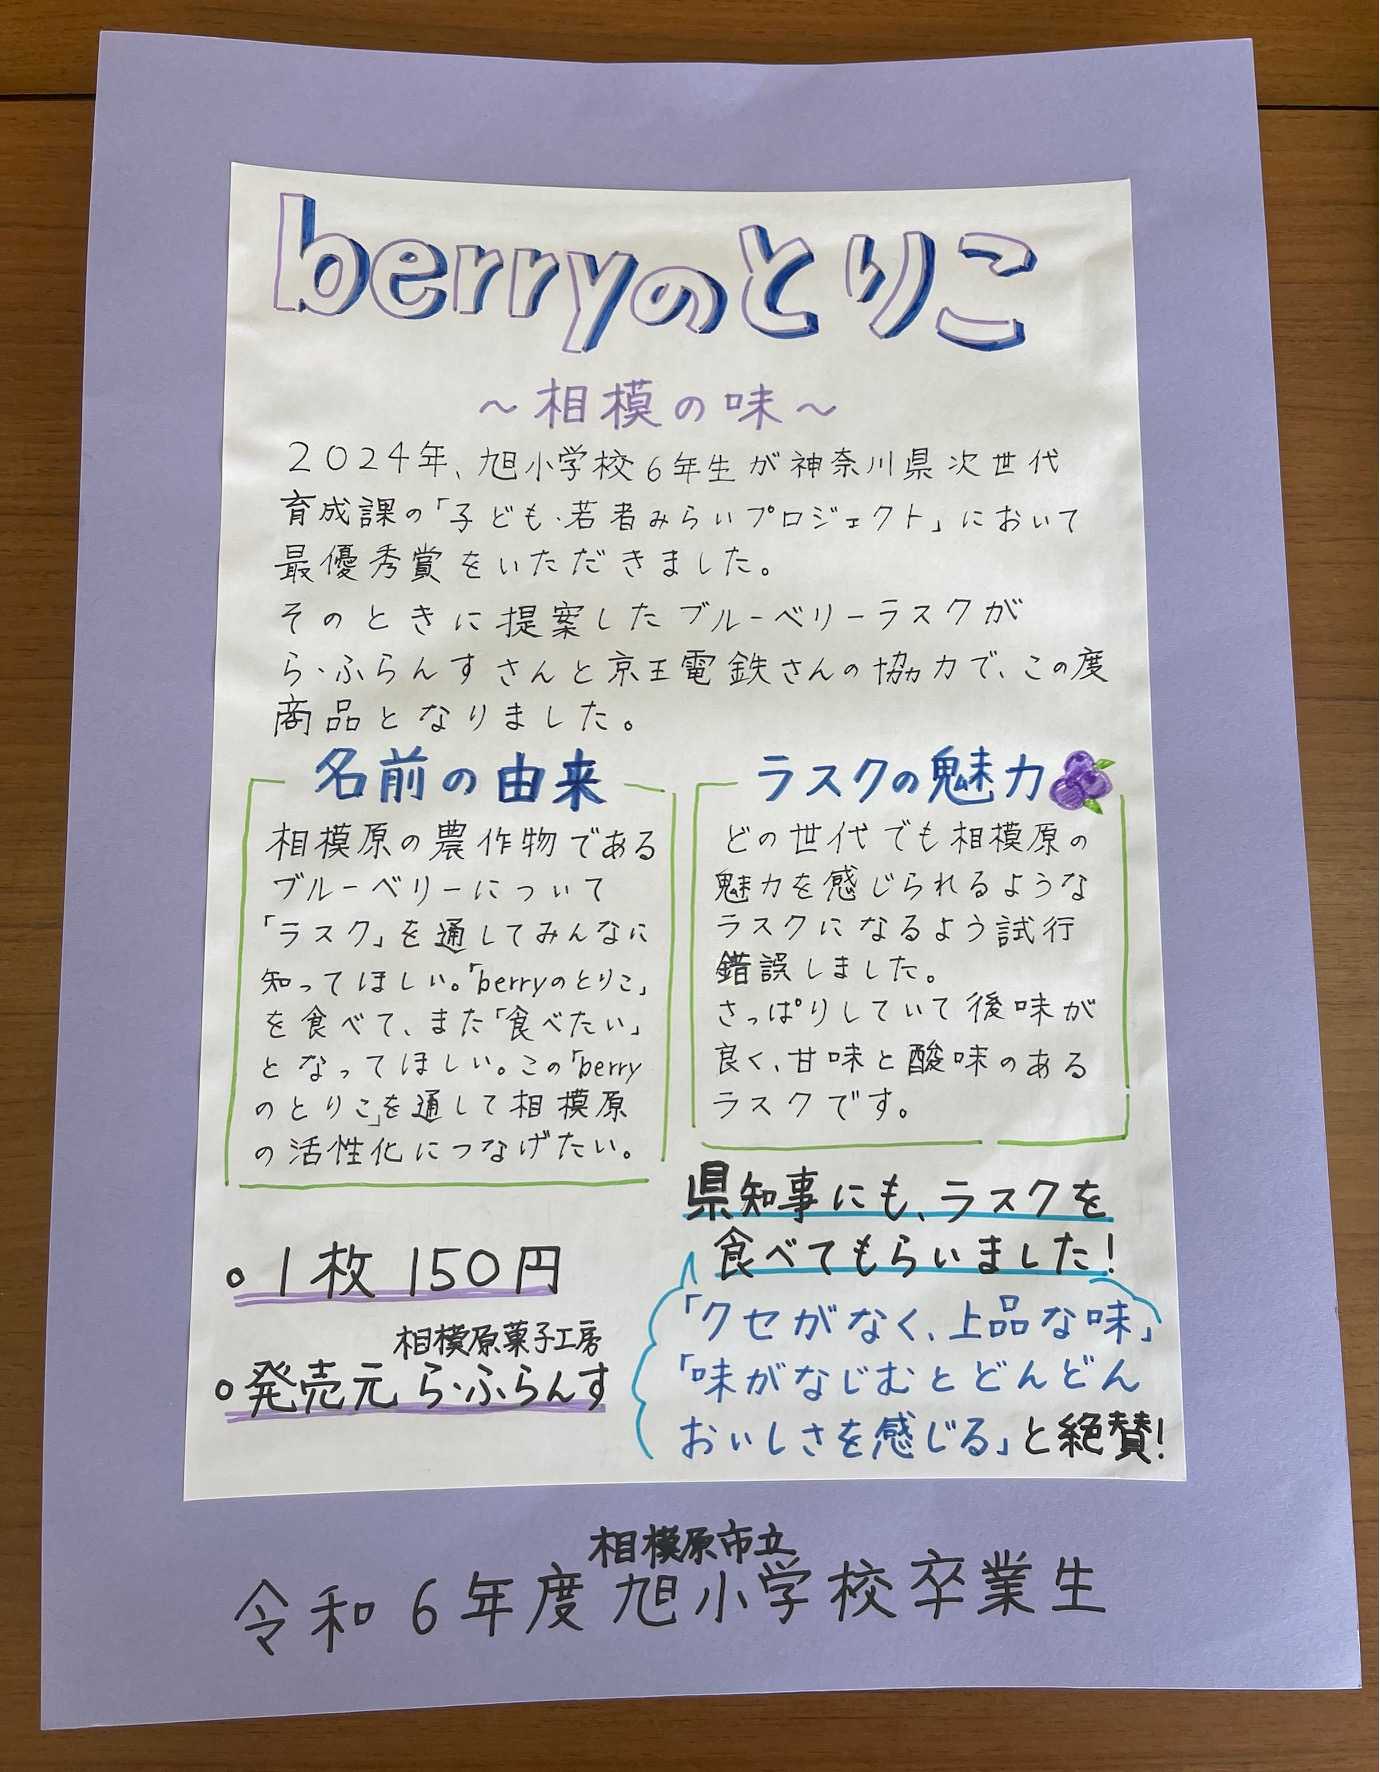 berryのとりこ
～相模の味～
2024年、旭小学校6年生が神奈川県次世代
育成課の「子ども・若者みらいプロジェクト」において
最優秀賞をいただきました。
そのときに提案したブルーベリーラスクが
ら・ふらんすさんと京王電鉄さんの協力で、この度
商品となりました。
名前の由来
相模原の農作物である
ブルーベリーについて
「ラスク」を通してみんなに
知ってほしい。「berryのとりこ」
を食べて、また「食べたい」
となってほしい。この「berry
のとりこ」を通して相模原
の活性化につなげたい。
ラスクの魅力
どの世代でも相模原の
魅力を感じられるような
ラスクになるよう試行
錯誤しました。
さっぱりしていて後味が
良く、甘味と酸味のある
ラスクです。
。1枚150円
相模原菓子工房
。発売元 ら・ふらんす
県知事にも、ラスクを
食べてもらいました！
「クセがなく、上品な味」
「味がなじむとどんどん
おいしさを感じる」と絶賛！
相模原市立
令和6年度旭小学校卒業生